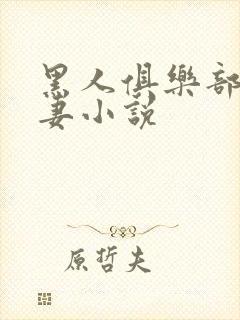 黑人俱樂部
妻小說
原哲夫